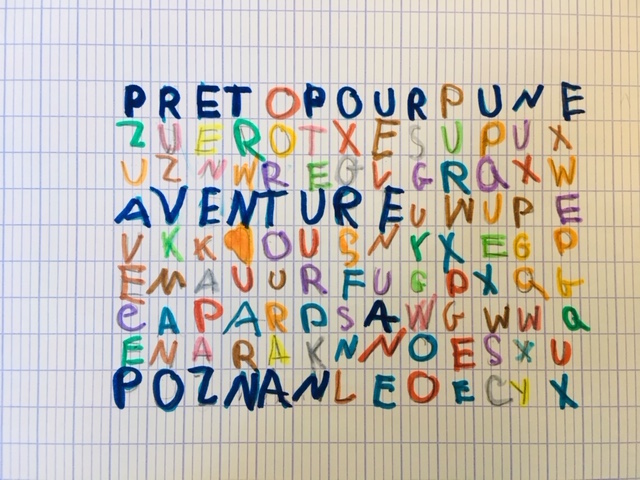 PRETOPOURPUNE
ZUEROTXESUPUX
UZNWREOVGRQXW
AVENTUREUWUPE
VKK🧡OUSNYXEGP
EMAUURFUGPXQG
CAPARPSAWGWWQ
ENARAKNNOESXU
POZNANLEOECYX